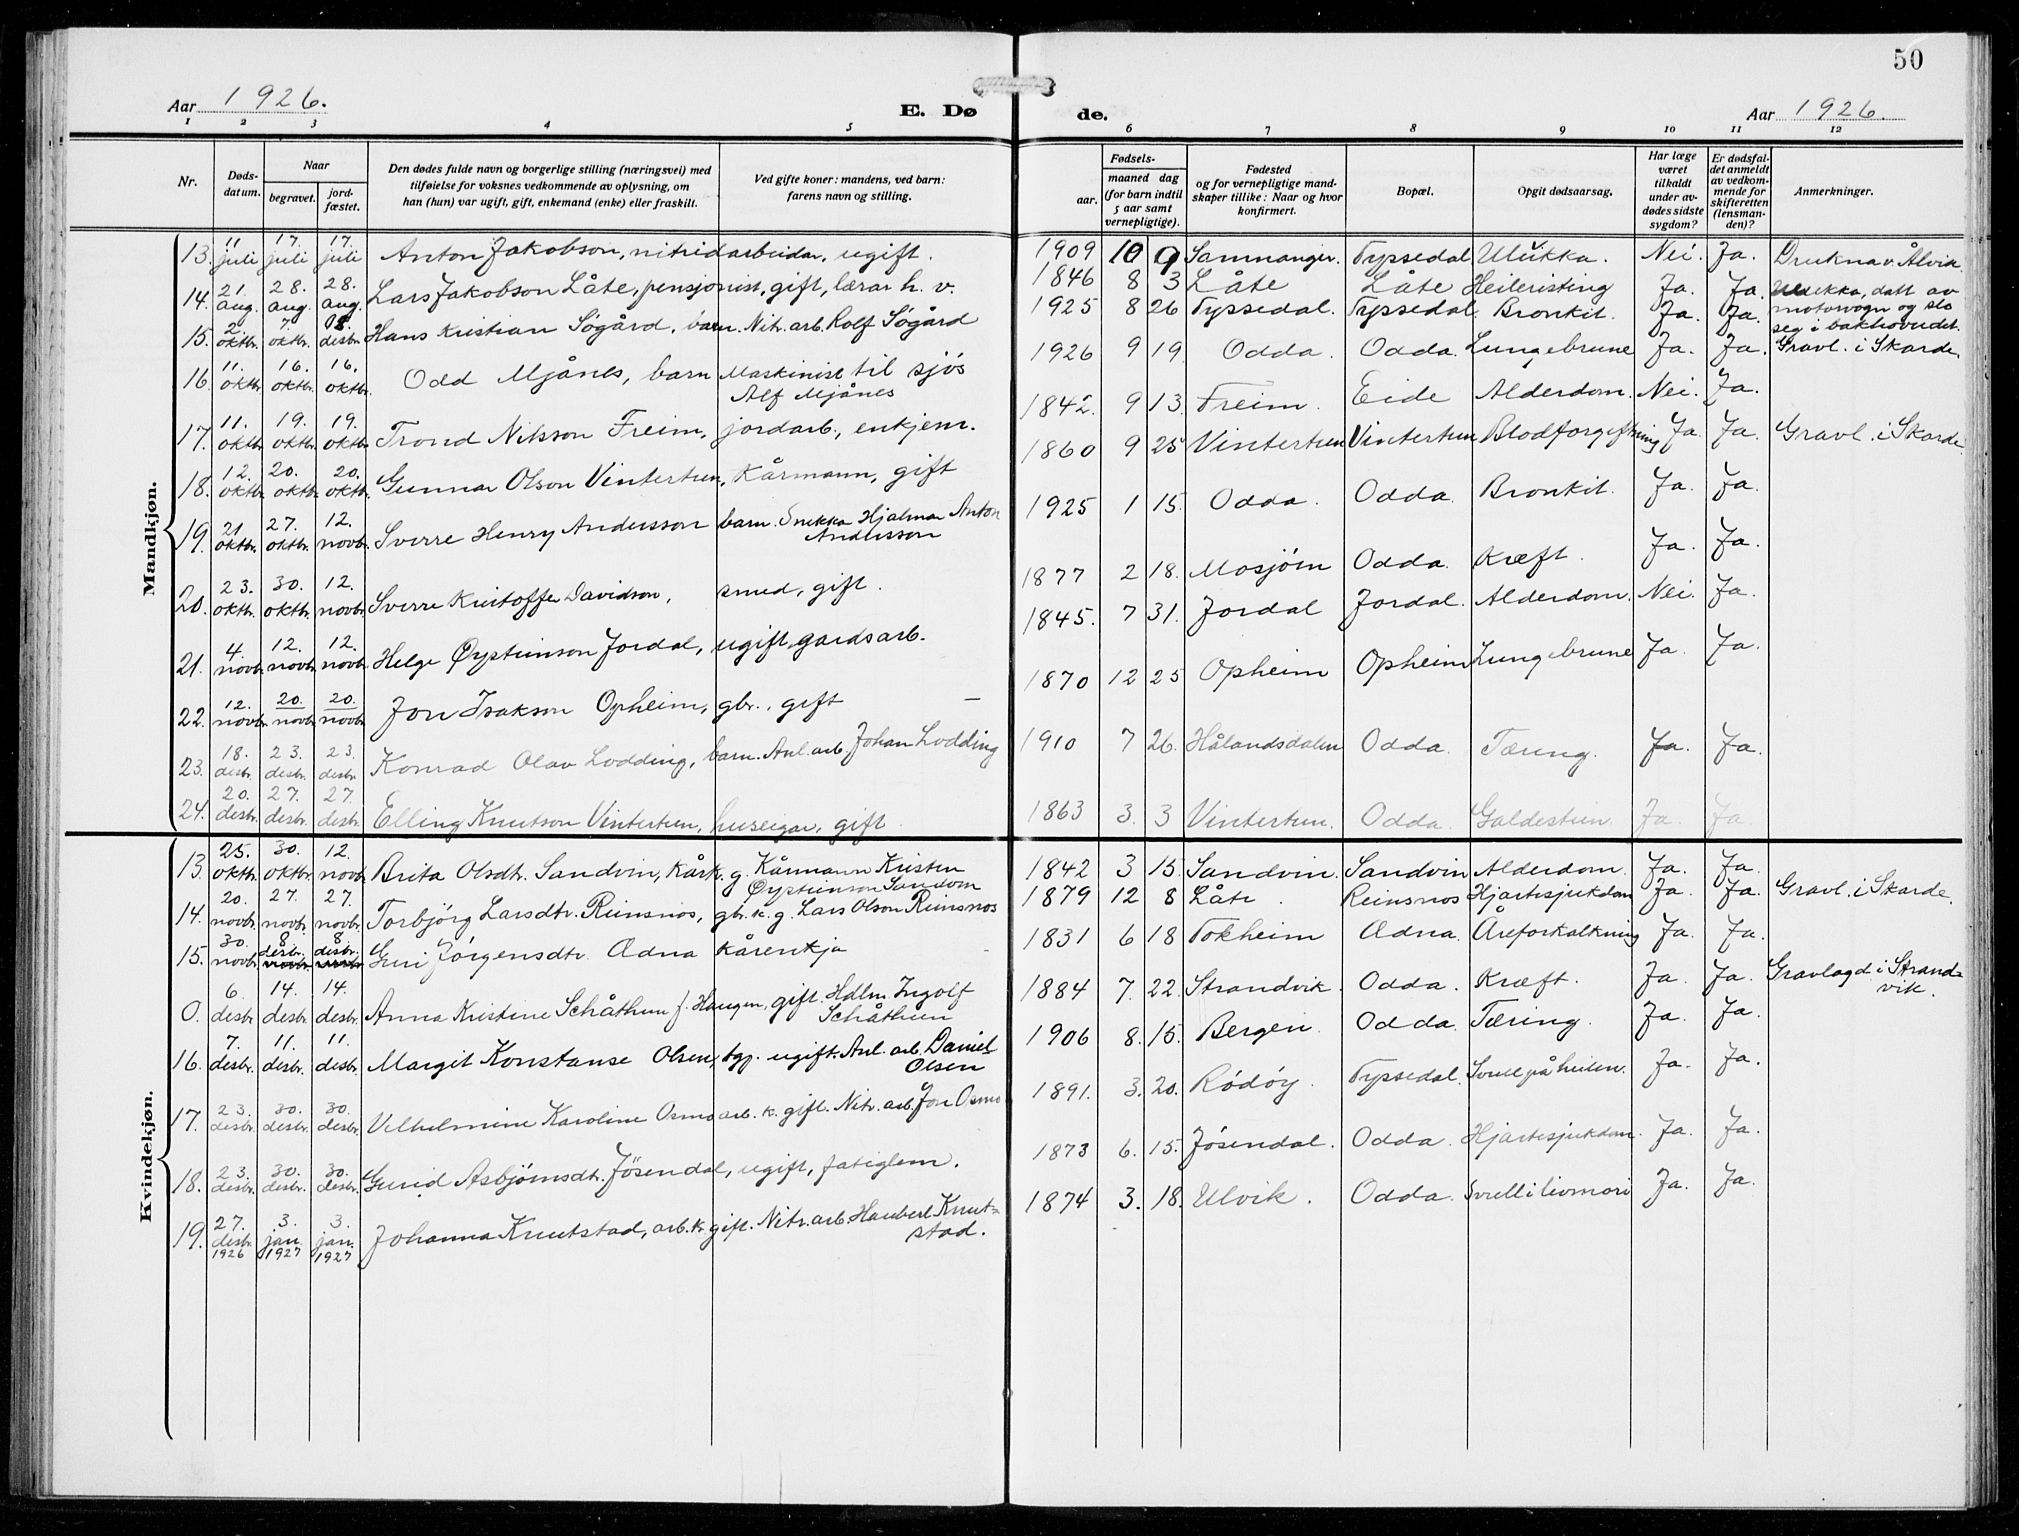 50
Aar 1926.
E. Dø
de.
Aar 1926.
1 2 3 4 5 6 7 8 9 10 11 12
Nr.
Døds-
datum.
Naar
begravet.
jord-
fæstet.
Den dødes fulde navn og borgerlige stilling (næringsvei) med
tilføielse for voksnes vedkommende av oplysning, om
han (hun) var ugift, gift, enkemand (enke) eller fraskilt.
Ved gifte koner: mandens, ved barn:
farens navn og stilling.
Fødsels-
aar.
maaned dag
(for barn indtil
5 aar samt
vernepligtige).
Fødested
og for vernepligtige mand-
skaper tillike: Naar og hvor
konfirmert.
Bopæl.
Opgit dødsaarsag.
Har læge
været
tilkaldt
under av-
dødes sidste
sygdom?
Er dødsfal-
det anmeldt
av vedkom-
mende for
skifteretten
(lensman-
den)?
Anmerkninger.
Mandkjøn.
13. 11 juli 17. juli 17. juli Anton Jakobson, nitridarbeidar, ugift. 1909 10 9 Samnanger. Tyssedal Ulukka. Nei. Ja. Drukna v. Ålvik.
14. 21. aug. 28. aug. 28. aug. Lars Jakobson Låte, pensjonist, gift, lærar h. v. 1846 8 3 Låte Låte Heileristing Ja. Ja. Ulukka, datt av
motorvogn og slo
seg i bakhovudet.
15. 2 oktbr. 7. oktbr. 8. desbr. Hans Kristian Søgård, barn. Nitr. arb. Rolf Søgård 1925 8 26 Tyssedal. Tyssedal. Bronkit. Ja. Ja.
16. 11. oktbr. 16. oktbr. 16. oktbr. Odd Mjånes, barn Maskinist til sjös
Alf Mjånes 1926 9 19. Odda. Odda. Lungebrune Ja. Ja. Gravl. i Skarde.
17. 11. oktbr. 19. oktbr. 19. oktbr. Trond Nilsson Freim, jordarb., enkjem. 1842. 9 13. Freim. Eide Alderdom. Nei. Ja.
18. 12. oktbr. 20. oktbr. 20. oktbr. Gunnar Olson Vintertun, Kårmann, gift 1860 9 25 Vintertun Vintertun Blodforgiftning Ja. Ja. Gravl. i Skarde
19. 21. oktbr. 27. oktbr. 12. novbr. Sverre Henry Andersson barn. Snikka Hjalmar Anton
Andersson 1925 1 15. Odda. Odda. Bronkit. Ja. Ja.
20. 23. oktbr. 30. oktbr. 12. novbr. Sverre Kristoffer Davidson, smed, gift. 1877 2 18. Mosjøen Odda. Kræft. Ja. Ja.
21. 4. novbr. 12. novbr. 12. novbr. Helge Øysteinson Jordal, ugift, gardsarb. 1845. 7 31. Jordal Jordal. Alderdom. Nei. Ja.
22. 12. novbr. 20. novbr. 20. novbr. Jon Isakson Opheim, gbr., gift 1870 12 25 Opheim Opheim Lungebrune Ja. Ja.
23. 18. desbr. 23. desbr. 23. desbr. Konrad Olav Lodding, barn. Anl. arb. Johan Lodding 1910 7 26. Hålandsdalen Odda. Tæring. Ja. Ja.
24. 20. desbr. 27. desbr. 27. desbr. Elling Knutson Vintertun, huseigar, gift 1863 3. 3 Vintertun. Odda. Galdestein. Ja. Ja.
Kvindekjøn.
13. 25. oktbr. 30. oktbr. 12. novbr. Brita Olsdtr. Sandvin, kårk. g. Kårmann Kristen
Øysteinson Sandvin 1842 3 15. Sandvin. Sandvin Alderdom. Ja. Ja.
14. 20. novbr. 27. novbr. 27. novbr. Torbjörg Larsdtr. Reinsnos, gbr. k. g. Lars Olson Reinsnos 1879 12 8 Låte. Reinsnos Hjartesjukdom Ja. Ja. Gravl. i Skarde.
15. 30. novbr. 8 desbr. 8 desbr. Guri Jörgensdtr. Ædna kårenkja 1831 6 18 Tokheim Ædna. Åreforkalkning Ja. Ja.
0. 6. desbr. 14. desbr. 14. desbr. Anna Kristine Schåthun f. Haugen, gift. Hdlm. Ingolf
Schåthun 1884 7. 22. Strandvik. Odda. Kræft. Ja. Ja. Gravlagd i Strand-
vik.
16. 7. desbr. 11. desbr. 11. desbr. Margit Konstanse Olsen, tgp. ugift. Anl. arb. Daniel
Olsen 1906 8. 15. Bergen. Odda Tæring. Ja. Ja.
17. 23. desbr. 30. desbr. 30. desbr. Vilhelmine Karoline Osmo arb. k. gift. Nitr. arb. Jon Osmo 1891. 3. 20. Rödöy. Tyssedal. Svull på heilen. Ja. Ja.
18. 23. desbr. 30. desbr. 30. desbr. Gurid Asbjørnsdtr. Jösendal, ugift, fatiglem. 1873 6. 15. Jösendal. Odda. Hjartesjukdom. Ja. Ja.
19. 27. desbr. 1926 3. jan. 1927 3. jan. 1927 Johanna Knutstad, arb. k. gift. Nitr. arb. Haubert Knut-
stad. 1874 3. 18. Ulvik. Odda. Svull i livmori Ja. Ja.